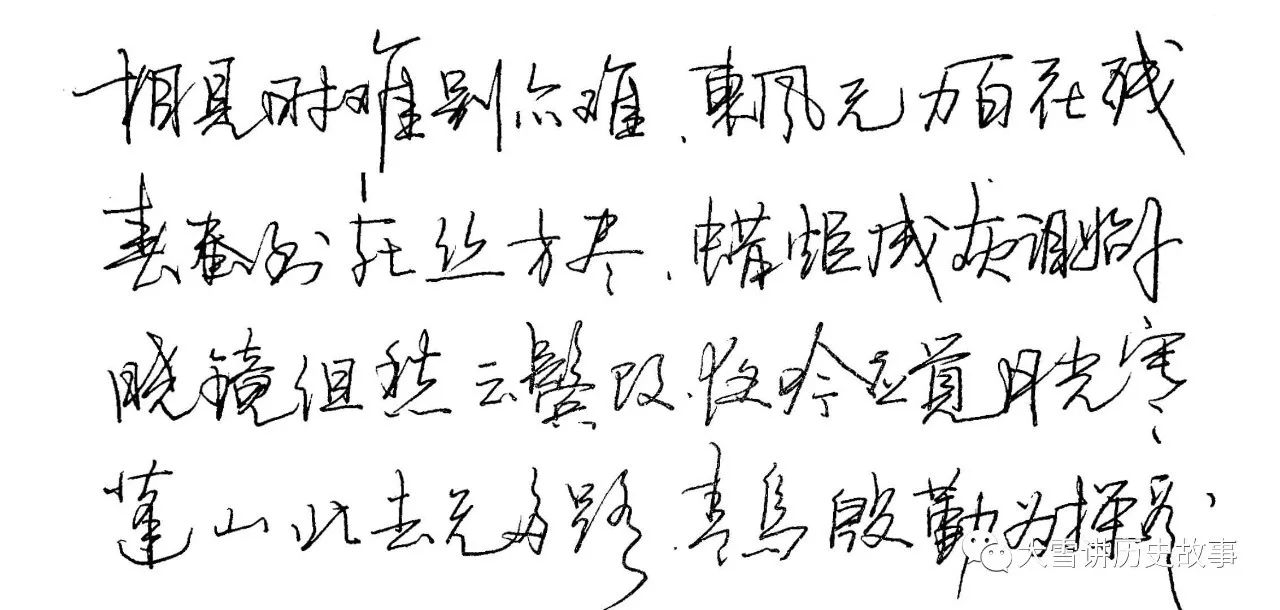 相見时难别亦难、東风无力百花残
春蚕到死丝方尽、蜡炬成灰泪始干
晓镜但愁云鬓改、夜吟应觉月光寒、
蓬山此去无多路、青鸟殷勤为探看、
大雪讲历史故事